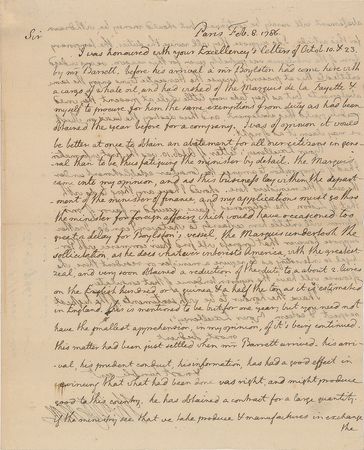 Sir Paris Feb. 8. 1786.
I was honoured with your Excellency's letters of Octob. 10. & 23.
by mr Barrett. before his arrival a mr Boylston had come here with
a cargo of whale oil, and had asked of the Marquis de la Fayette &
myself to procure for him the same exemptions from duty as had been
obtained the year before for a company. I was of opinion it would
be better at once to obtain an abatement for all our citizens in gene-
ral than to be thus fatiguing the minister by detail. the Marquis
came into my opinion, and as this business lay within the depart-
ment of the minister of finance, and my applications must go thro
the minister for foreign affairs, which would have occasioned too
great a delay for Boylston's vessel, the Marquis undertook the
sollicitation as he does whatever interests America with the greatest
zeal, and very soon obtained a reduction of the duty to about 2 livres
on the English hundred, or a guinea & a half the ton as it is estimated
in England. this is mentioned to be but for one year; but you need not
have the smallest apprehension, in my opinion, of it's being continued.
this matter had been just settled when mr Barrett arrived. his arri-
val, his prudent conduct, his information, has had a good effect in
convincing that what had been done was right, and might produce
good to this country. he has obtained a contract for a large quantity.
if the ministry see that we take produce & manufactures in exchange
the